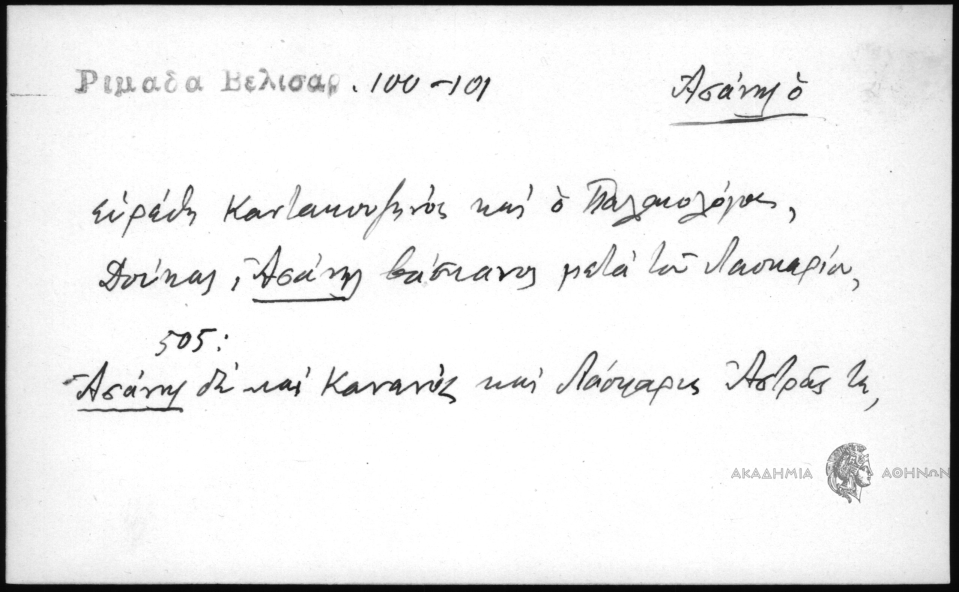 Ριμαδα Βελισαρ. 100-101 Ἀσάνης ὁ
εὑρέθη Καντακουζηνὸς καὶ ὁ Παλαιολόγος,
Δούκας, Ἀσάνης βάσκανος μετὰ τοῦ Λασκαρίου,
505:
Ἀσάνης δὲ καὶ Κανανὸς καὶ Λάσκαρις Ἀστρᾶς τε,
ΑΚΑΔΗΜΙΑ ΑΘΗΝΩΝ